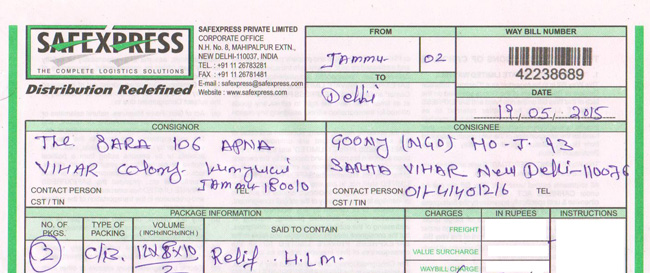 SAFEXPRESS
THE COMPLETE LOGISTICS SOLUTIONS
Distribution Redefined
SAFEXPRESS PRIVATE LIMITED
CORPORATE OFFICE
N.H. No. 8, MAHIPALPUR EXTN.,
NEW DELHI-110037, INDIA
TEL. : +91 11 26783281
FAX : +91 11 26781481
E-mail : safexpress@safexpress.com
Website : www.safexpress.com
FROM
Jammu 02
TO
Delhi
WAY BILL NUMBER
42238689
DATE
19.05.2015
CONSIGNOR
The SARA 106 APNA
VIHAR Colony
Jammu 180010
CONTACT PERSON TEL
CST / TIN
CONSIGNEE
GOONJ (NGO) HO-J. 93
SARITA VIHAR New Delhi-110076
CONTACT PERSON 011-41401216 TEL
CST / TIN
PACKAGE INFORMATION
CHARGES IN RUPEES INSTRUCTIONS
NO. OF PKGS. TYPE OF PACKING VOLUME (INCHxINCHxINCH) SAID TO CONTAIN
FREIGHT
VALUE SURCHARGE
WAYBILL CHARGE
2 C/B. 12x8x10 Relif. H.L.M.